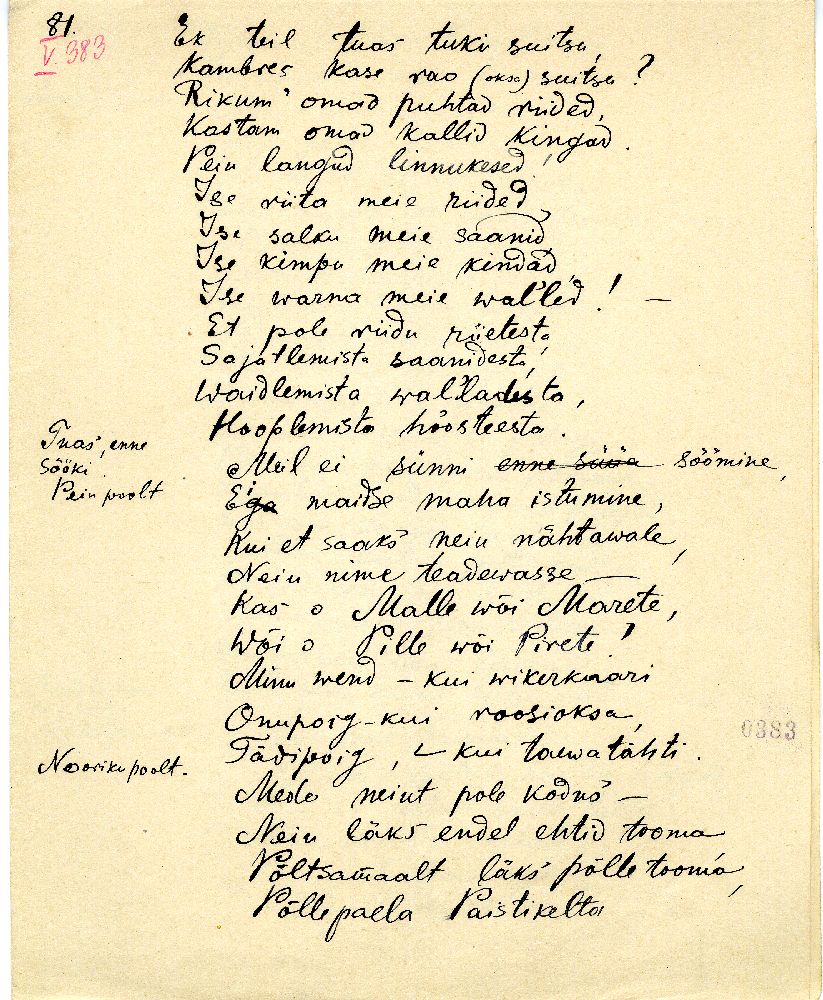 81.
V 383
Ek teil tuas tuki suitsu,
Kambres kase rao (oksa) suitsu?
Rikum' omad puhtad riided,
Kastam omad kallid kingad.
Pein langud linnukesed!
Ise riita meie riided,
Ise salku meie saanid,
Ise kimpu meie kindad,
Ise warna meie wal'led! —
Et pole riidu riietesta,
Sajatlemista saanidesta,
Waidlemista wal'ladesta,
Hooplemista hõosteesta.
Tuas, enne
sööki.
Pein poolt
Meil ei sünni enne süüa söömine,
Ega maidse maha istumine,
Kui et saaks nein nähtawale,
Nein nime teadewasse —
Kas o Malle wõi Marete,
Wõi o Pille wõi Pirete!
Minu wend – kui wikerkaari
Onupoig – kui roosioksa,
0383
Tädipoig, – kui taewatähti.
Nooriku poolt.
Medo neiut pole kodus —
Nein läks endel ehtid tooma
Põltsamaalt läks põlle tooma,
Põllepaela Paistikelta